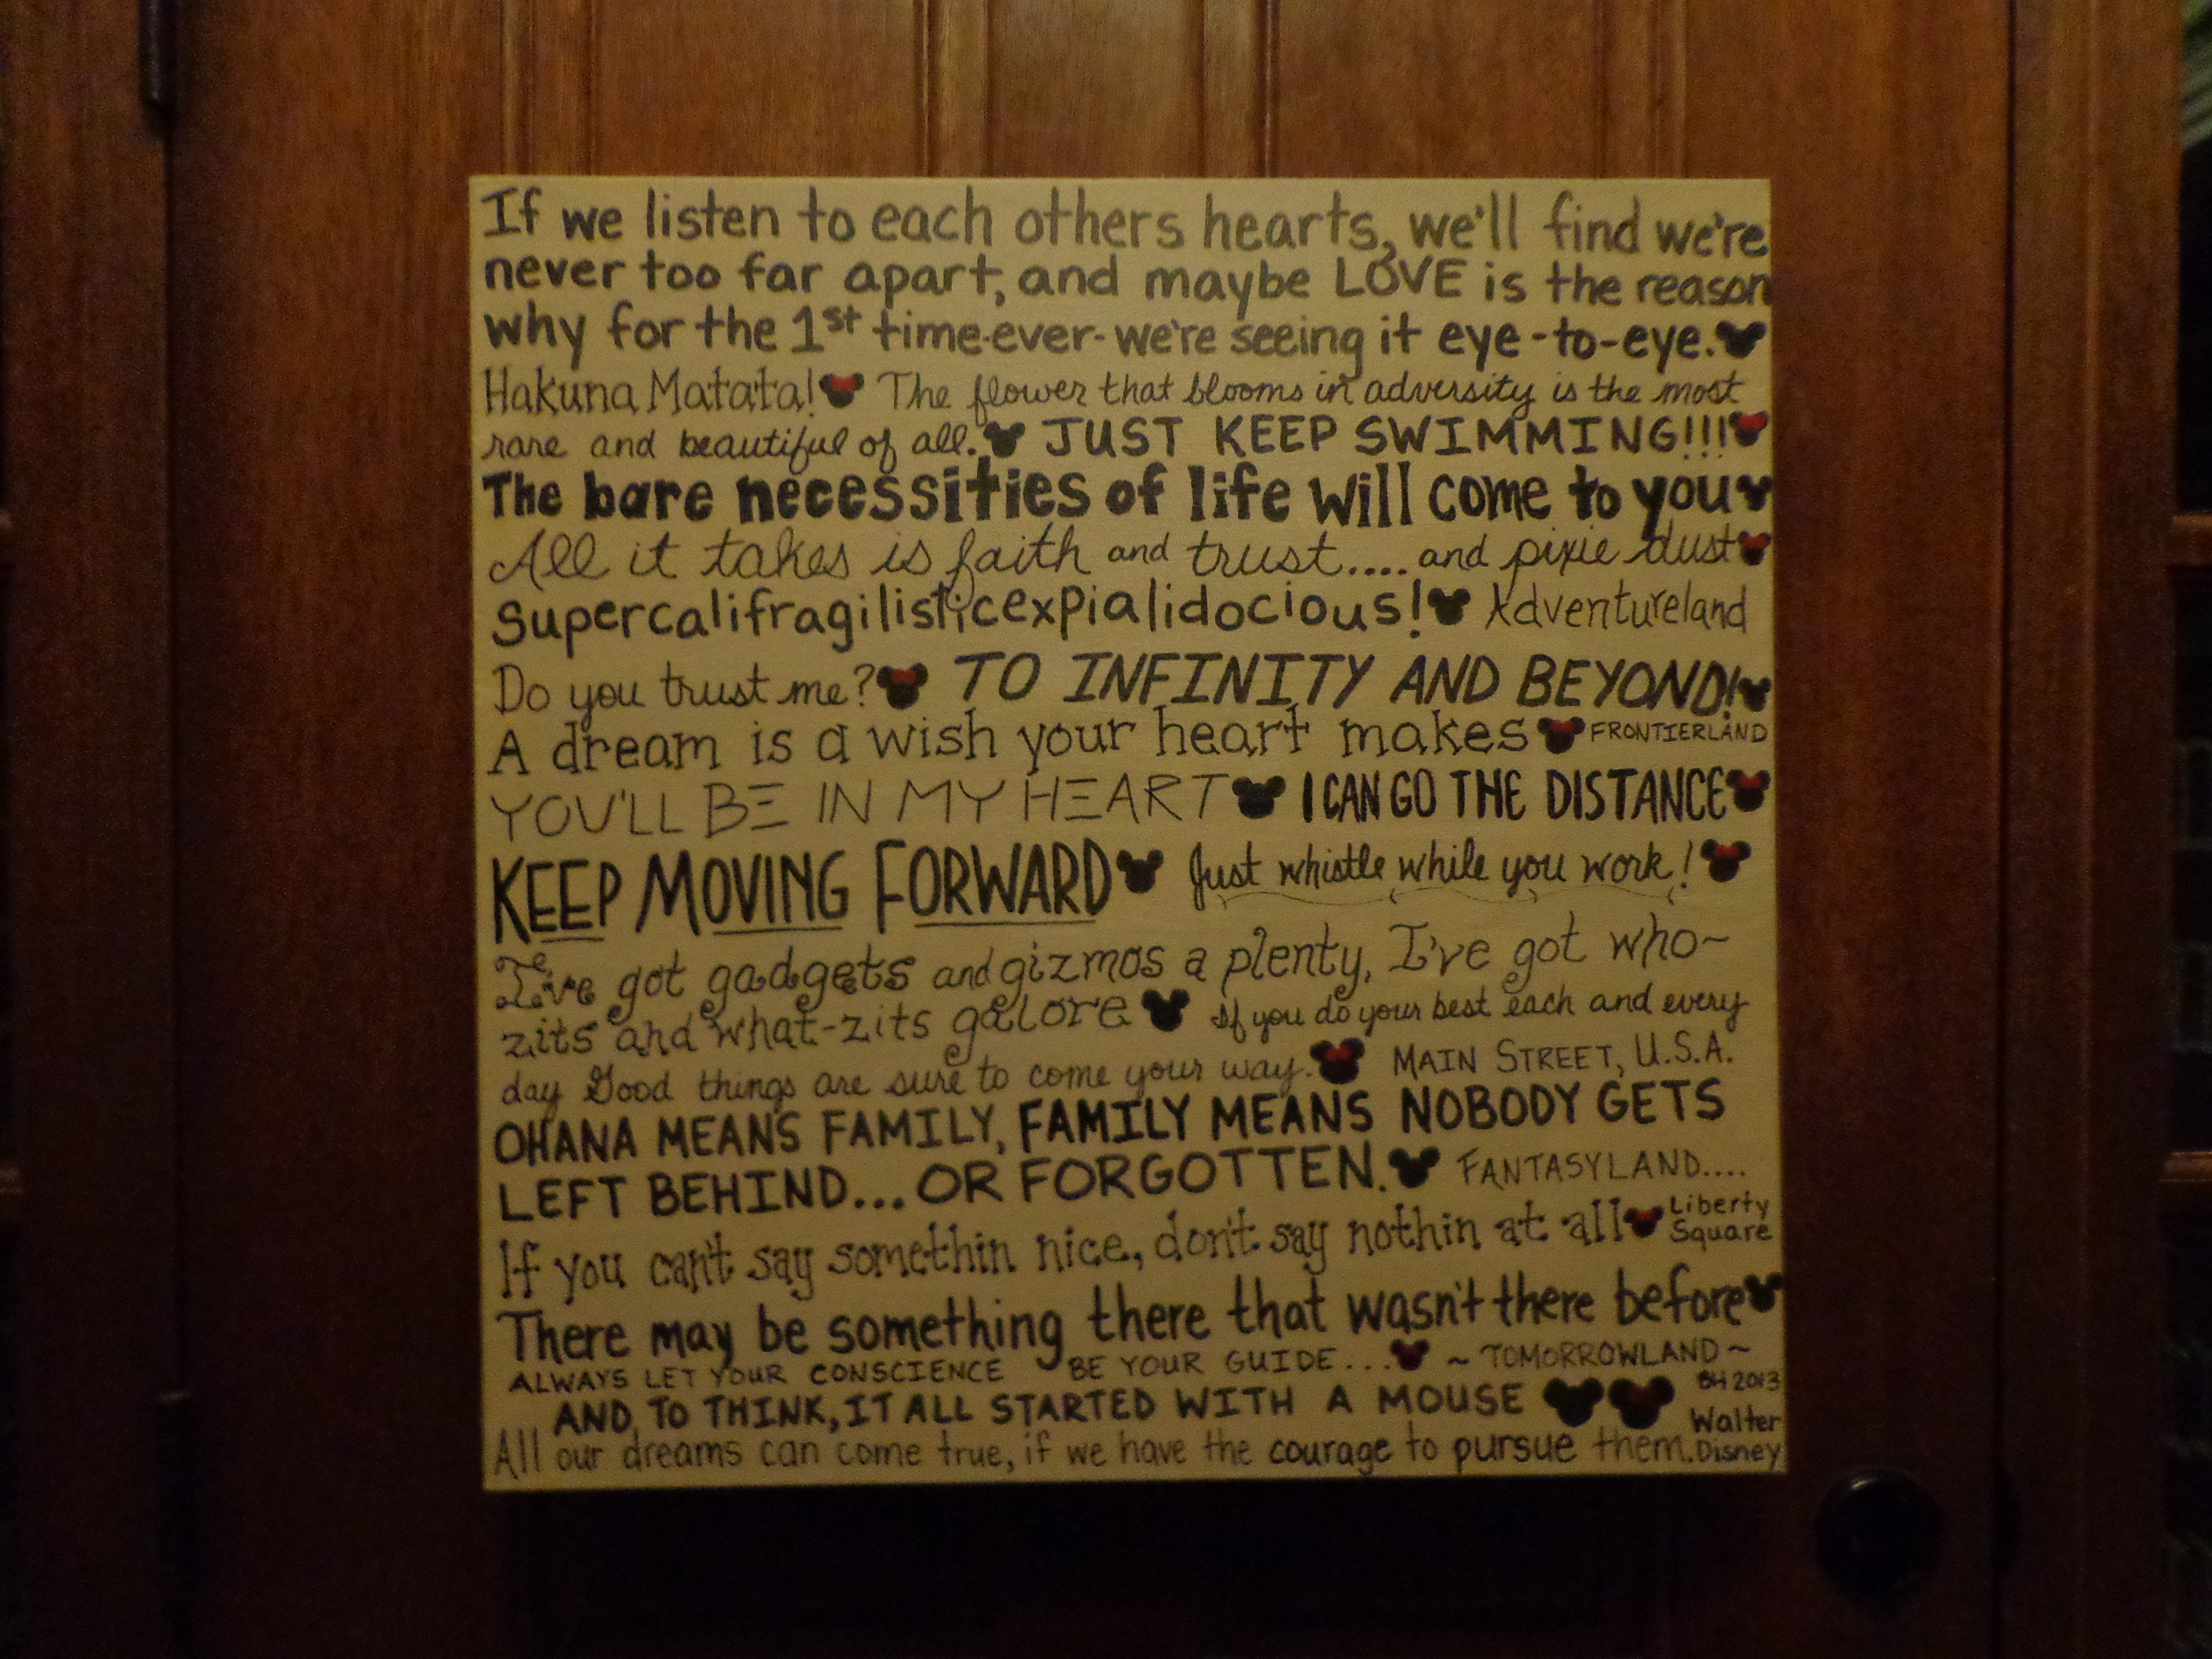 If we listen to each others hearts, we'll find we're
never too far apart, and maybe LOVE is the reason
why for the 1st time-ever- we're seeing it eye-to-eye.
Hakuna Matata! The flower that blooms in adversity is the most
rare and beautiful of all. JUST KEEP SWIMMING!!!
The bare necessities of life will come to you
All it takes is faith and trust.... and pixie dust
Supercalifragilisticexpialidocious! Adventureland
Do you trust me? TO INFINITY AND BEYOND!
A dream is a wish your heart makes FRONTIERLAND
YOU'LL BE IN MY HEART I CAN GO THE DISTANCE
KEEP MOVING FORWARD Just whistle while you work!
I've got gadgets and gizmos a plenty, I've got who~
zits and what-zits galore If you do your best each and every
day Good things are sure to come your way. MAIN STREET, U.S.A.
OHANA MEANS FAMILY, FAMILY MEANS NOBODY GETS
LEFT BEHIND... OR FORGOTTEN. FANTASYLAND....
If you can't say somethin nice, don't say nothin at all Liberty Square
There may be something there that wasn't there before
ALWAYS LET YOUR CONSCIENCE BE YOUR GUIDE... ~ TOMORROWLAND ~
BH 2013
AND TO THINK, IT ALL STARTED WITH A MOUSE
All our dreams can come true, if we have the courage to pursue them. Walter Disney